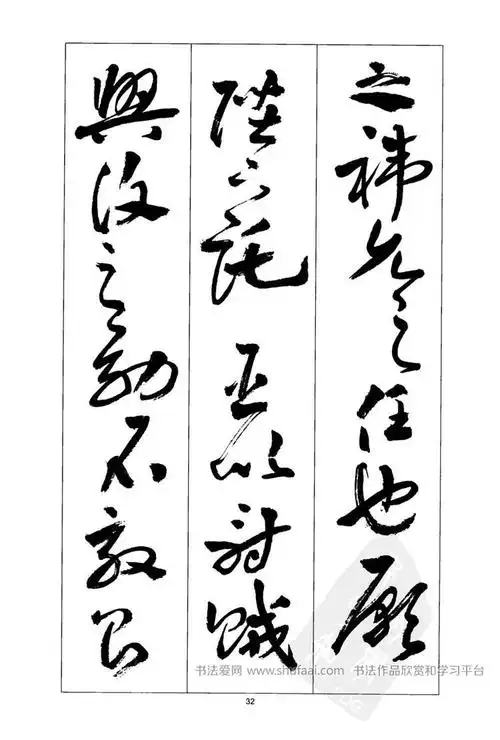 之禕允之任也願
陛下託臣以討賊
興復之効不效則
书法爱网 www.shufaai.com 书法作品欣赏和学习平台
32